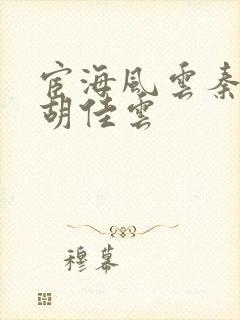 宦海風雲秦
胡佳雲
穆幕